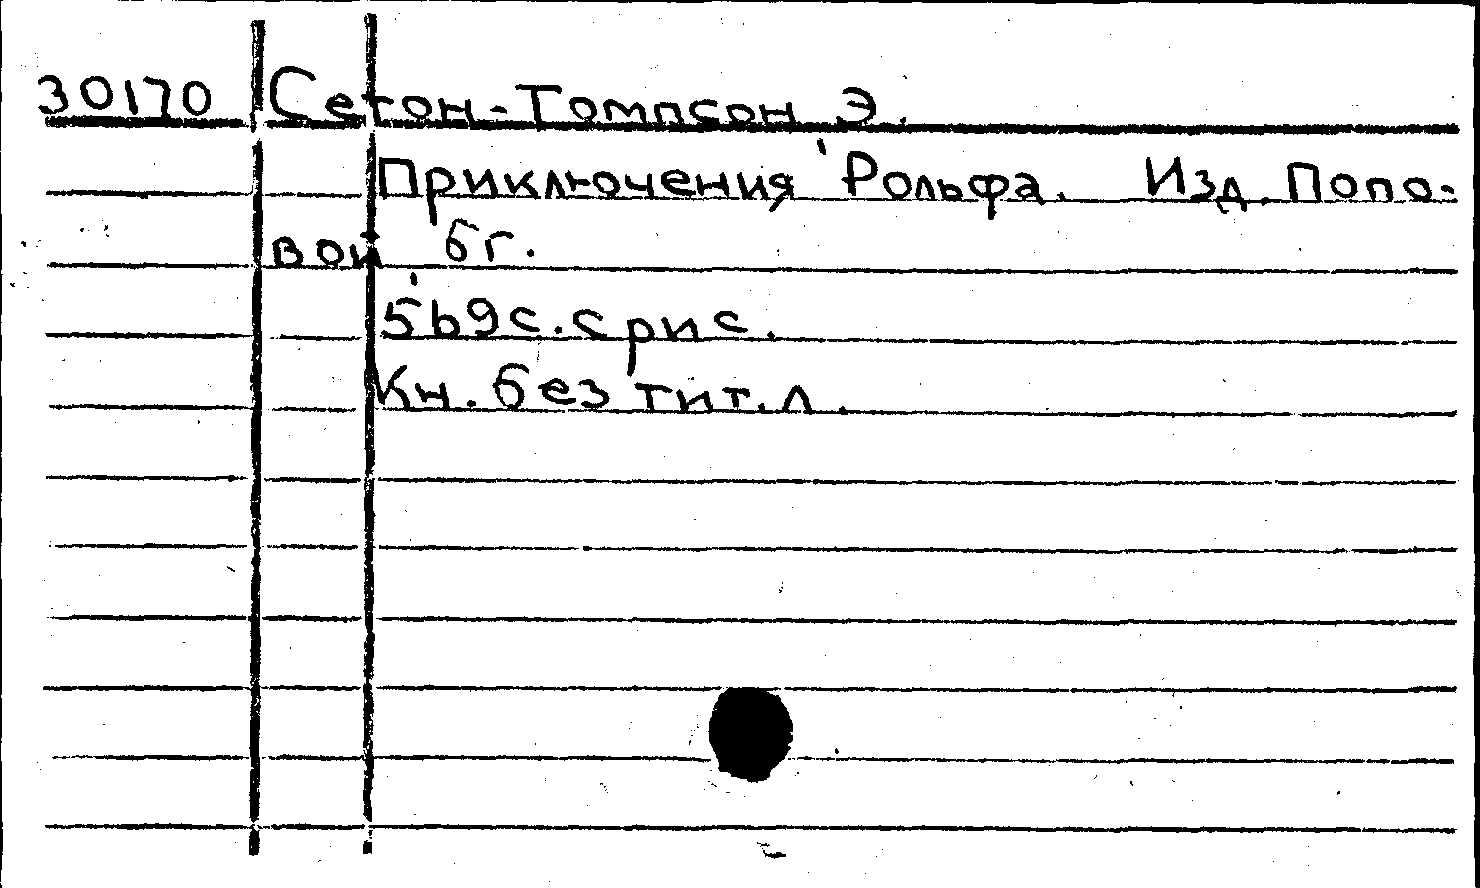 30170 Сетон-Томпсон Э.
Приключения Рольфа. Изд. Попо-
вой, бг.
569с. с рис.
Кн. без тит. л.